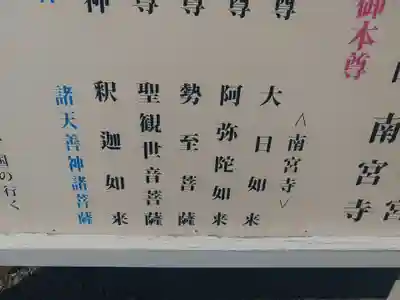 御本尊
南宮
南宮寺
尊
尊
尊
尊
神
<南宮寺>
大日如来
阿弥陀如来
勢至菩薩
聖観世音菩薩
釈迦如来
諸天善神諸菩薩
国の行く